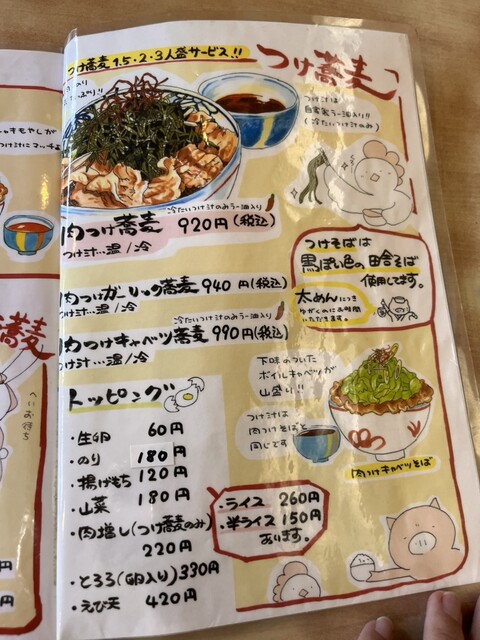 つけ蕎麦 1.5・2・3人盛サービス!!
つけ蕎麦
つけ汁は
自家製ラー油入り!!
(冷たいつけ汁のみ)
冷たいつけ汁のみラー油入り
肉つけ蕎麦 920円(税込)
つけ汁…温/冷
肉つけガーリック蕎麦 940円(税込)
つけ汁…温/冷
冷たいつけ汁のみラー油入り
肉つけキャベツ蕎麦 990円(税込)
つけ汁…温/冷
つけそばは
黒っぽい色の田舎そば
使用してます。
太めんにつき
ゆがくのにお時間
いただきます。
下味のついた
ボイルキャベツが
山盛り!!
つけ汁は
肉つけそばと
同じです
肉つけキャベツそば
トッピング
・生卵 60円
・のり 180円
・揚げもち 120円
・山菜 180円
・肉増し(つけ蕎麦のみ)
220円
・とろろ(卵入り) 330円
・えび天 420円
・ライス 260円
・半ライス 150円
あります。
蕎麦
へいお待ち